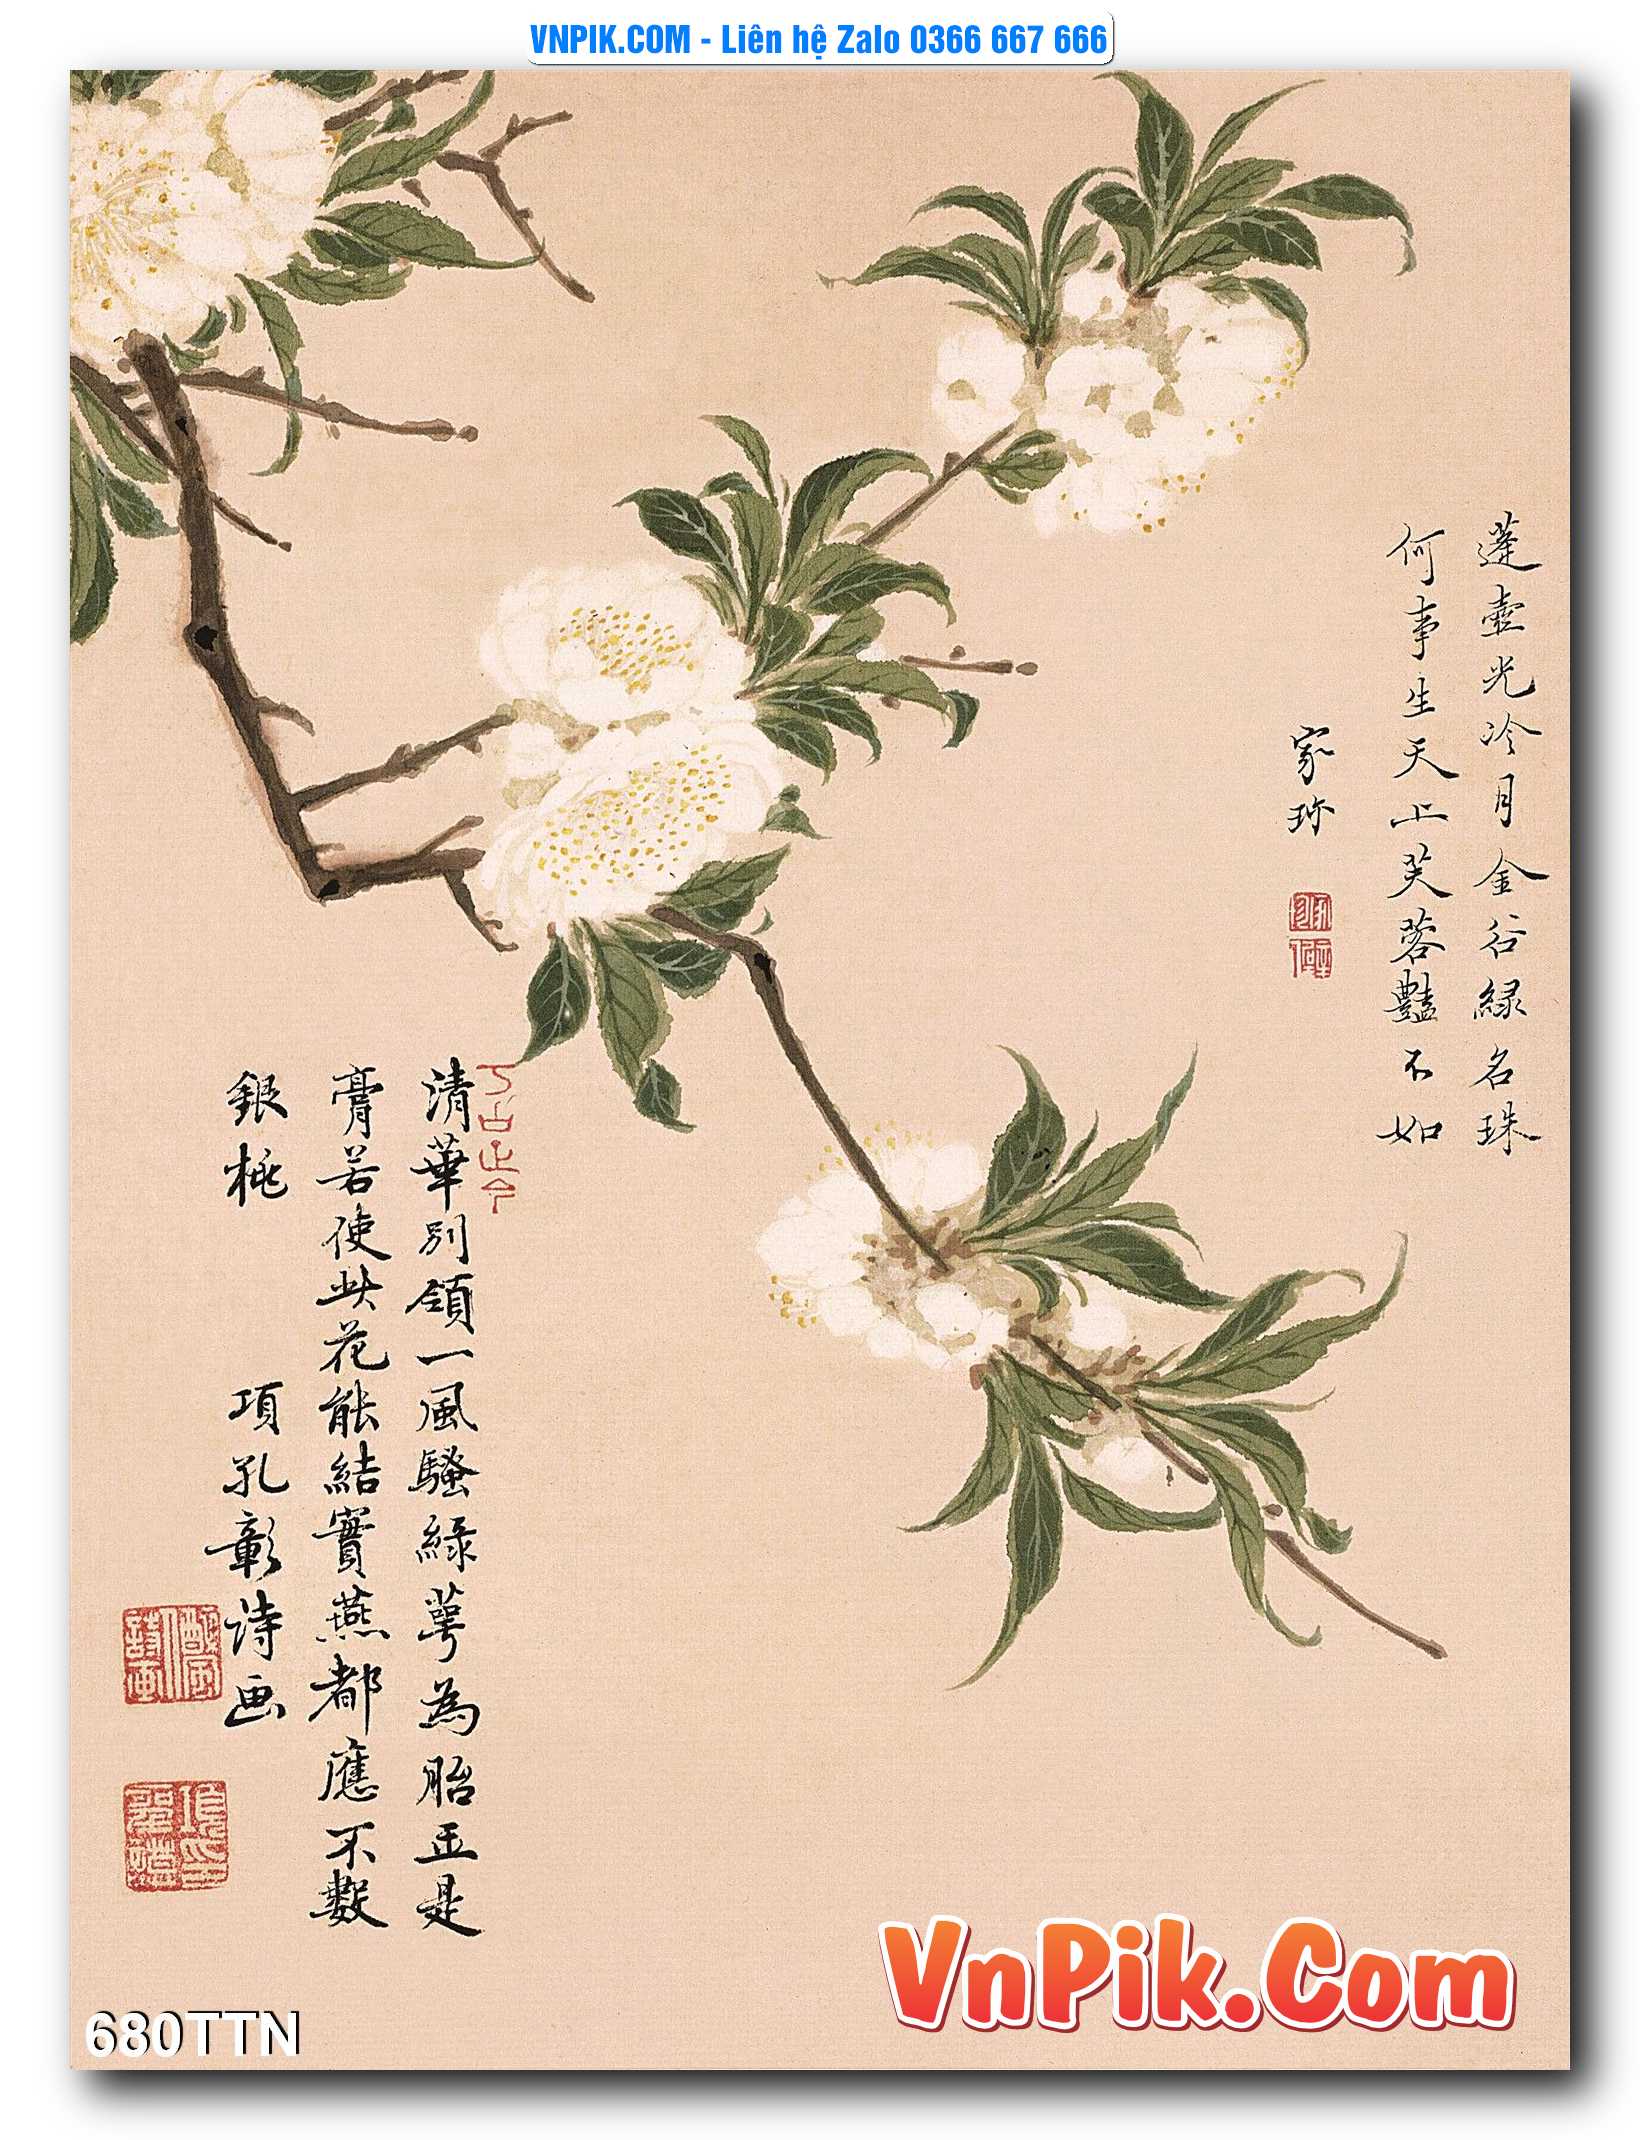 VNPIK.COM - Liên hệ Zalo 0366 667 666
蓬壺光冷月金谷綠名珠
何事生天上芙蓉豔不如
家珍
清華別領一風騷綠萼為胎正是
膏若使此花能結實燕都應不數
銀桃 項孔彰詩画
VnPik.Com
680TTN